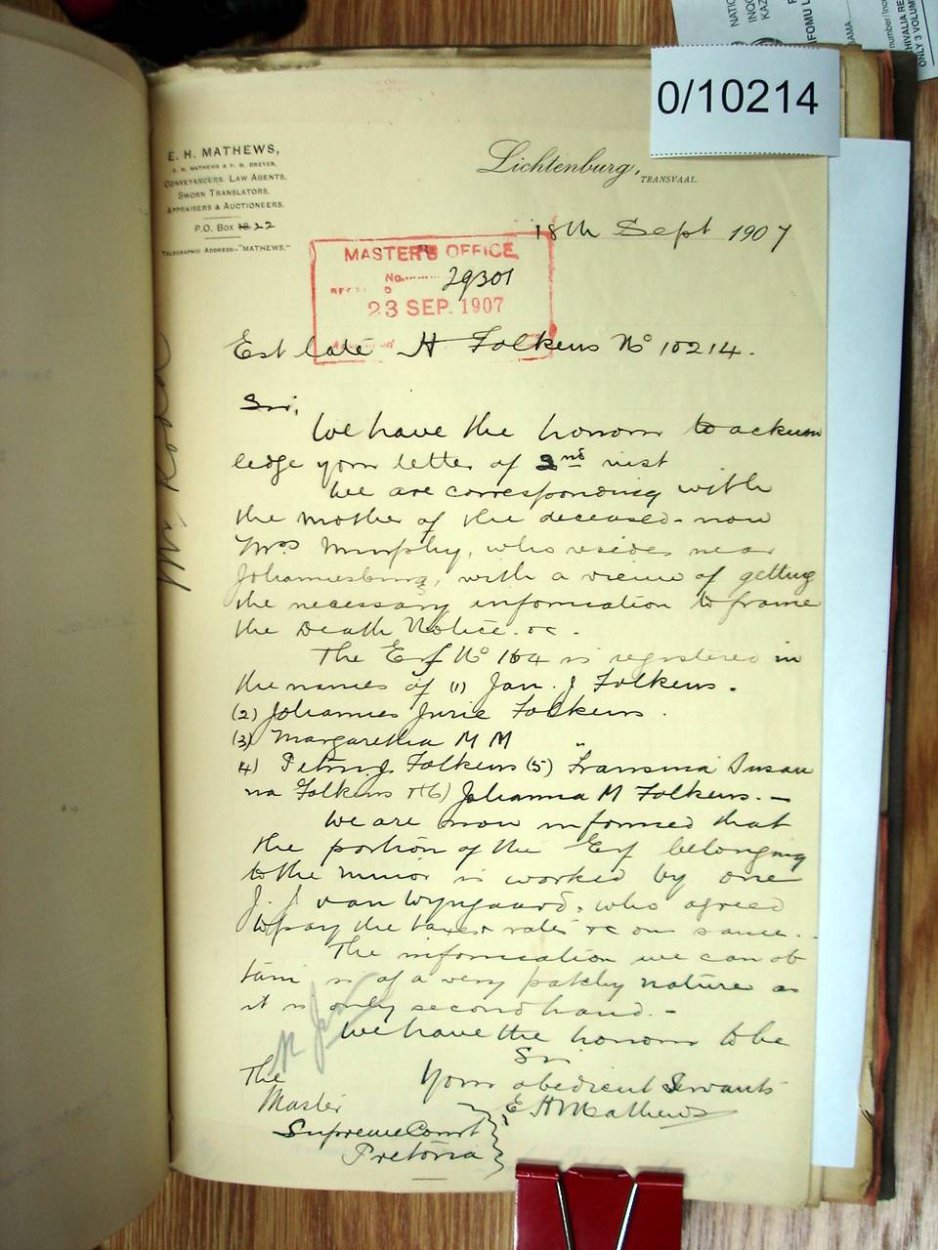 0/10214
E. H. MATHEWS,
CONVEYANCERS, LAW AGENTS,
SWORN TRANSLATORS,
APPRAISERS & AUCTIONEERS.
P.O. BOX 22
TELEGRAPHIC ADDRESS:-"MATHEWS."
Lichtenburg,
TRANSVAAL.
18th Sept 1907
MASTER'S OFFICE
No. 29301
23 SEP. 1907
Est late H Folkens No 10214.
Sir,
We have the honour to acknow
ledge your letter of 2nd inst
We are corresponding with
the mother of the deceased - now
Mrs Murphy, who resides near
Johannesburg, with a view of getting
the necessary information to frame
the Death Notice. &c.
The Erf No 164 is registered in
the names of (1) Jan. J Folkens.
(2) Johannes Jurie Folkens.
(3) Margaretha M M
4) Petrus J. Folkens (5) Fransina Susan
na Folkens & (6) Johanna M Folkens. -
We are now informed that
the portion of the Erf belonging
to the minor is worked by one
J. J van Wyngaard, who agreed
to pay the taxes & rates &c on same.
The information we can ob
tain is of a very patchy nature as
it is only second hand. -
We have the honour to be
Sir
Your obedient Servants
E H Mathews
The
Master
Supreme Court
Pretoria